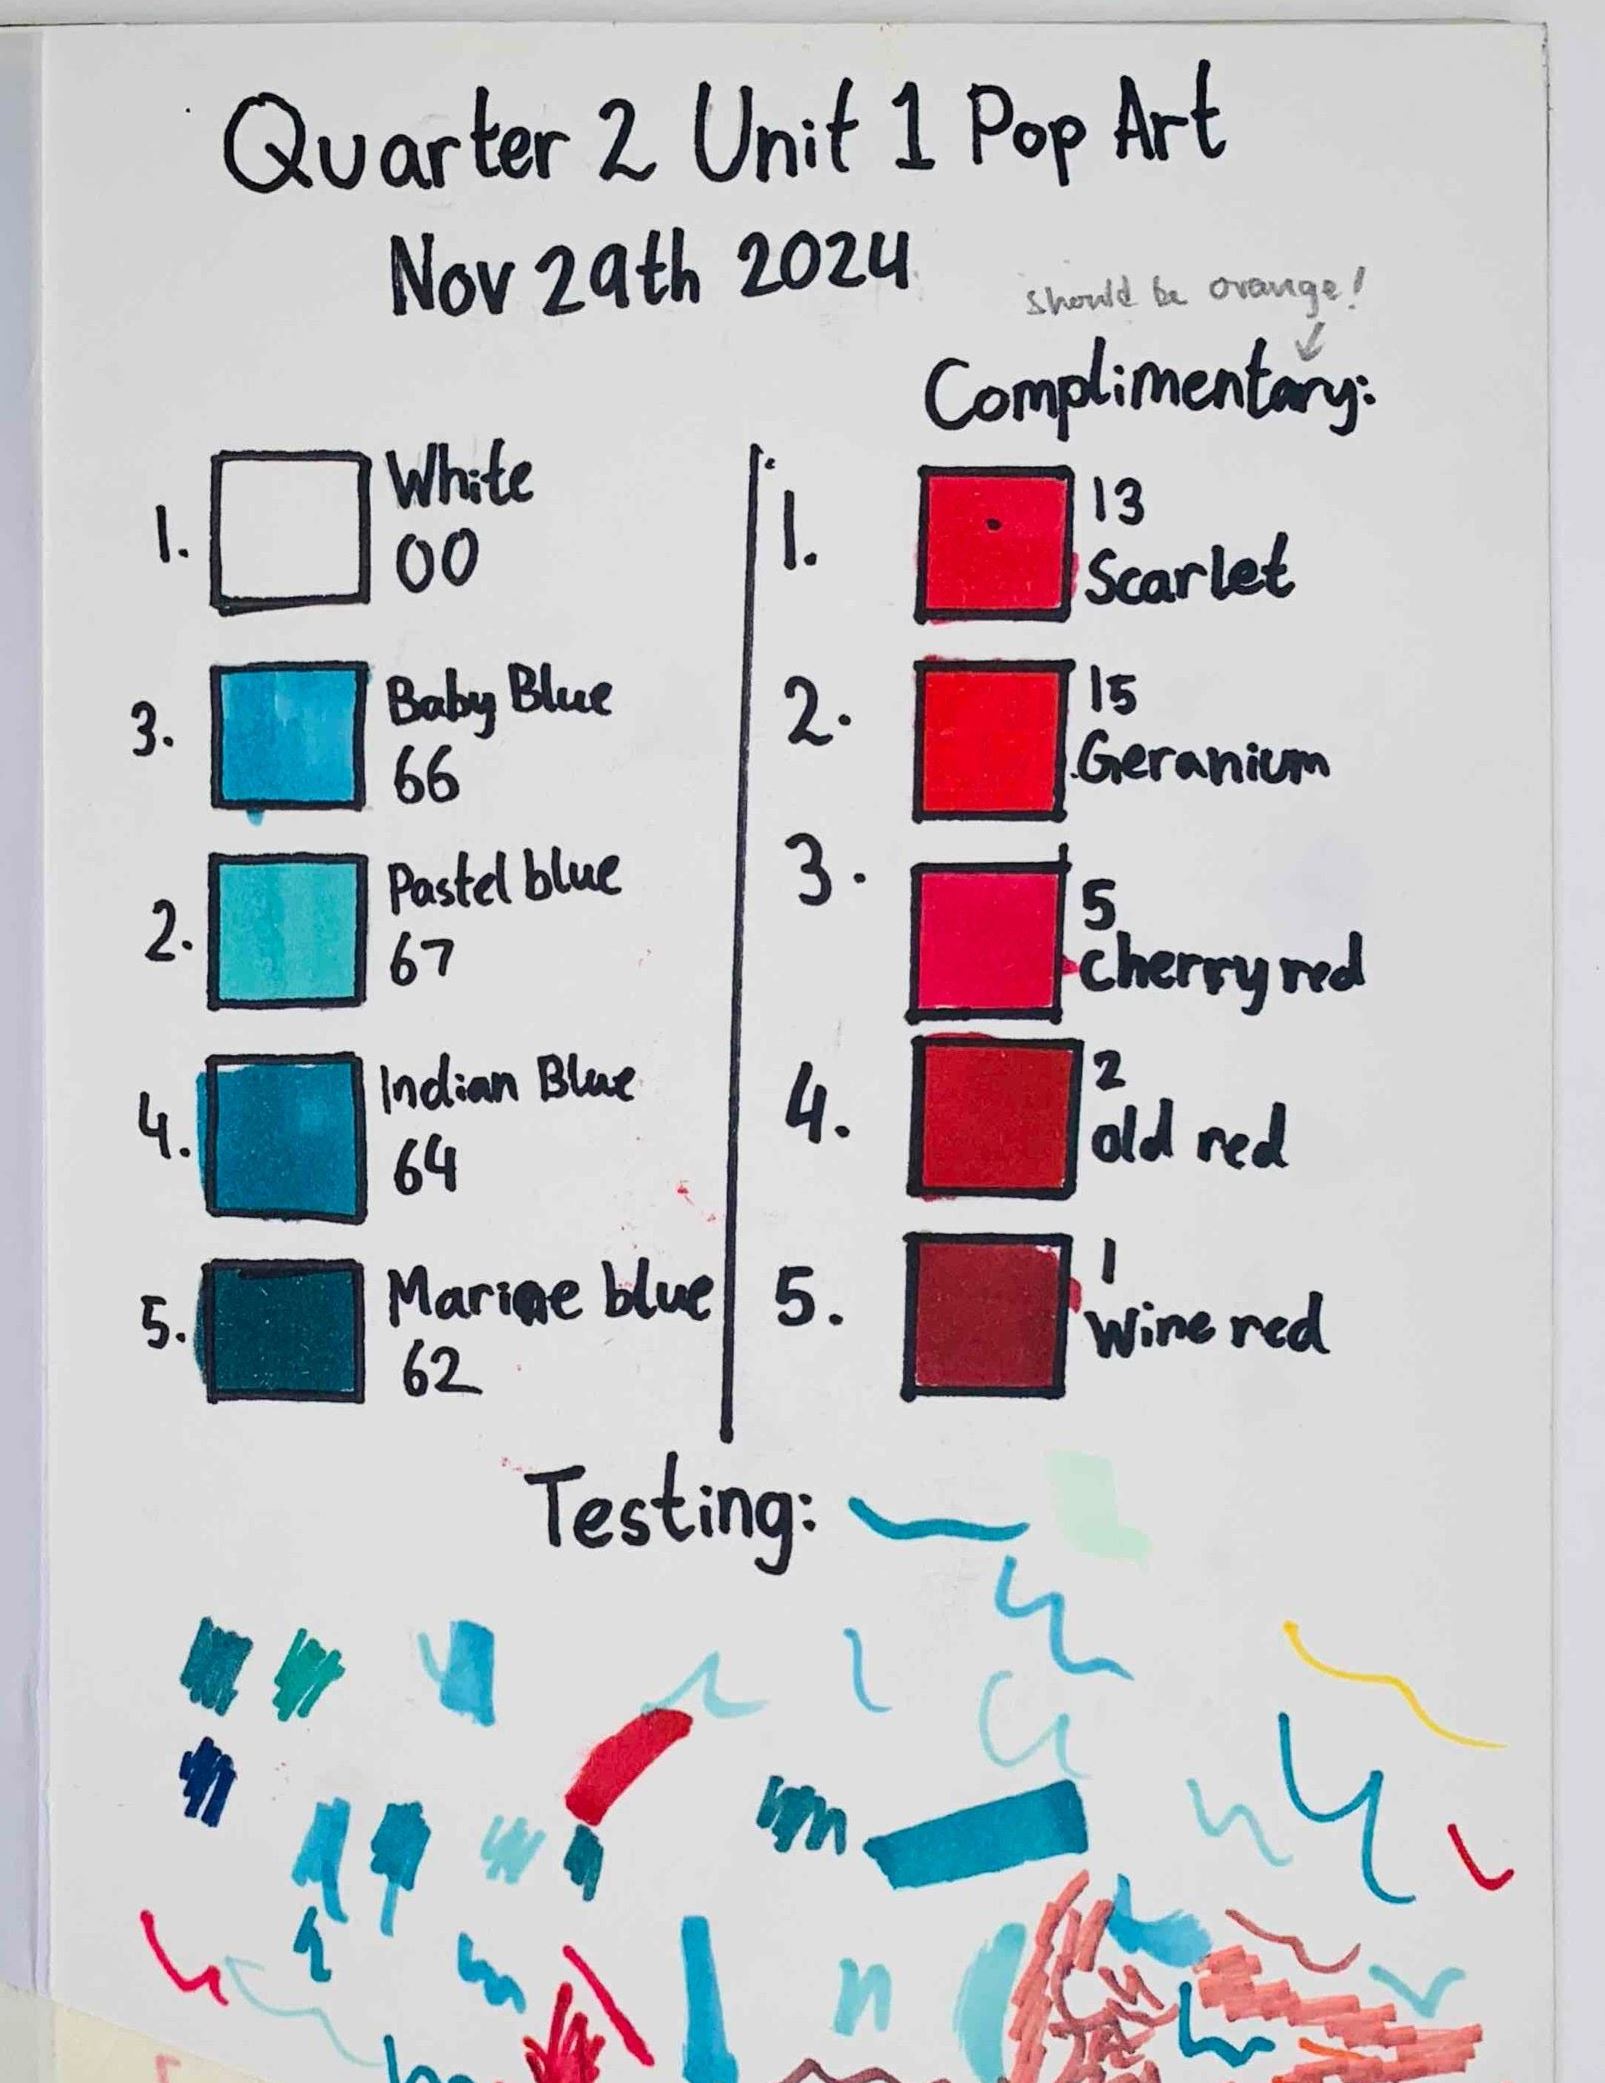 Quarter 2 Unit 1 Pop Art
Nov 29th 2024
should be orange!
Complimentary:
1. White
00
3. Baby Blue
66
2. Pastel blue
67
4. Indian Blue
64
5. Marine blue
62
1. 13
Scarlet
2. 15
Geranium
3. 5
Cherry red
4. 2
old red
5. 1
Wine red
Testing: